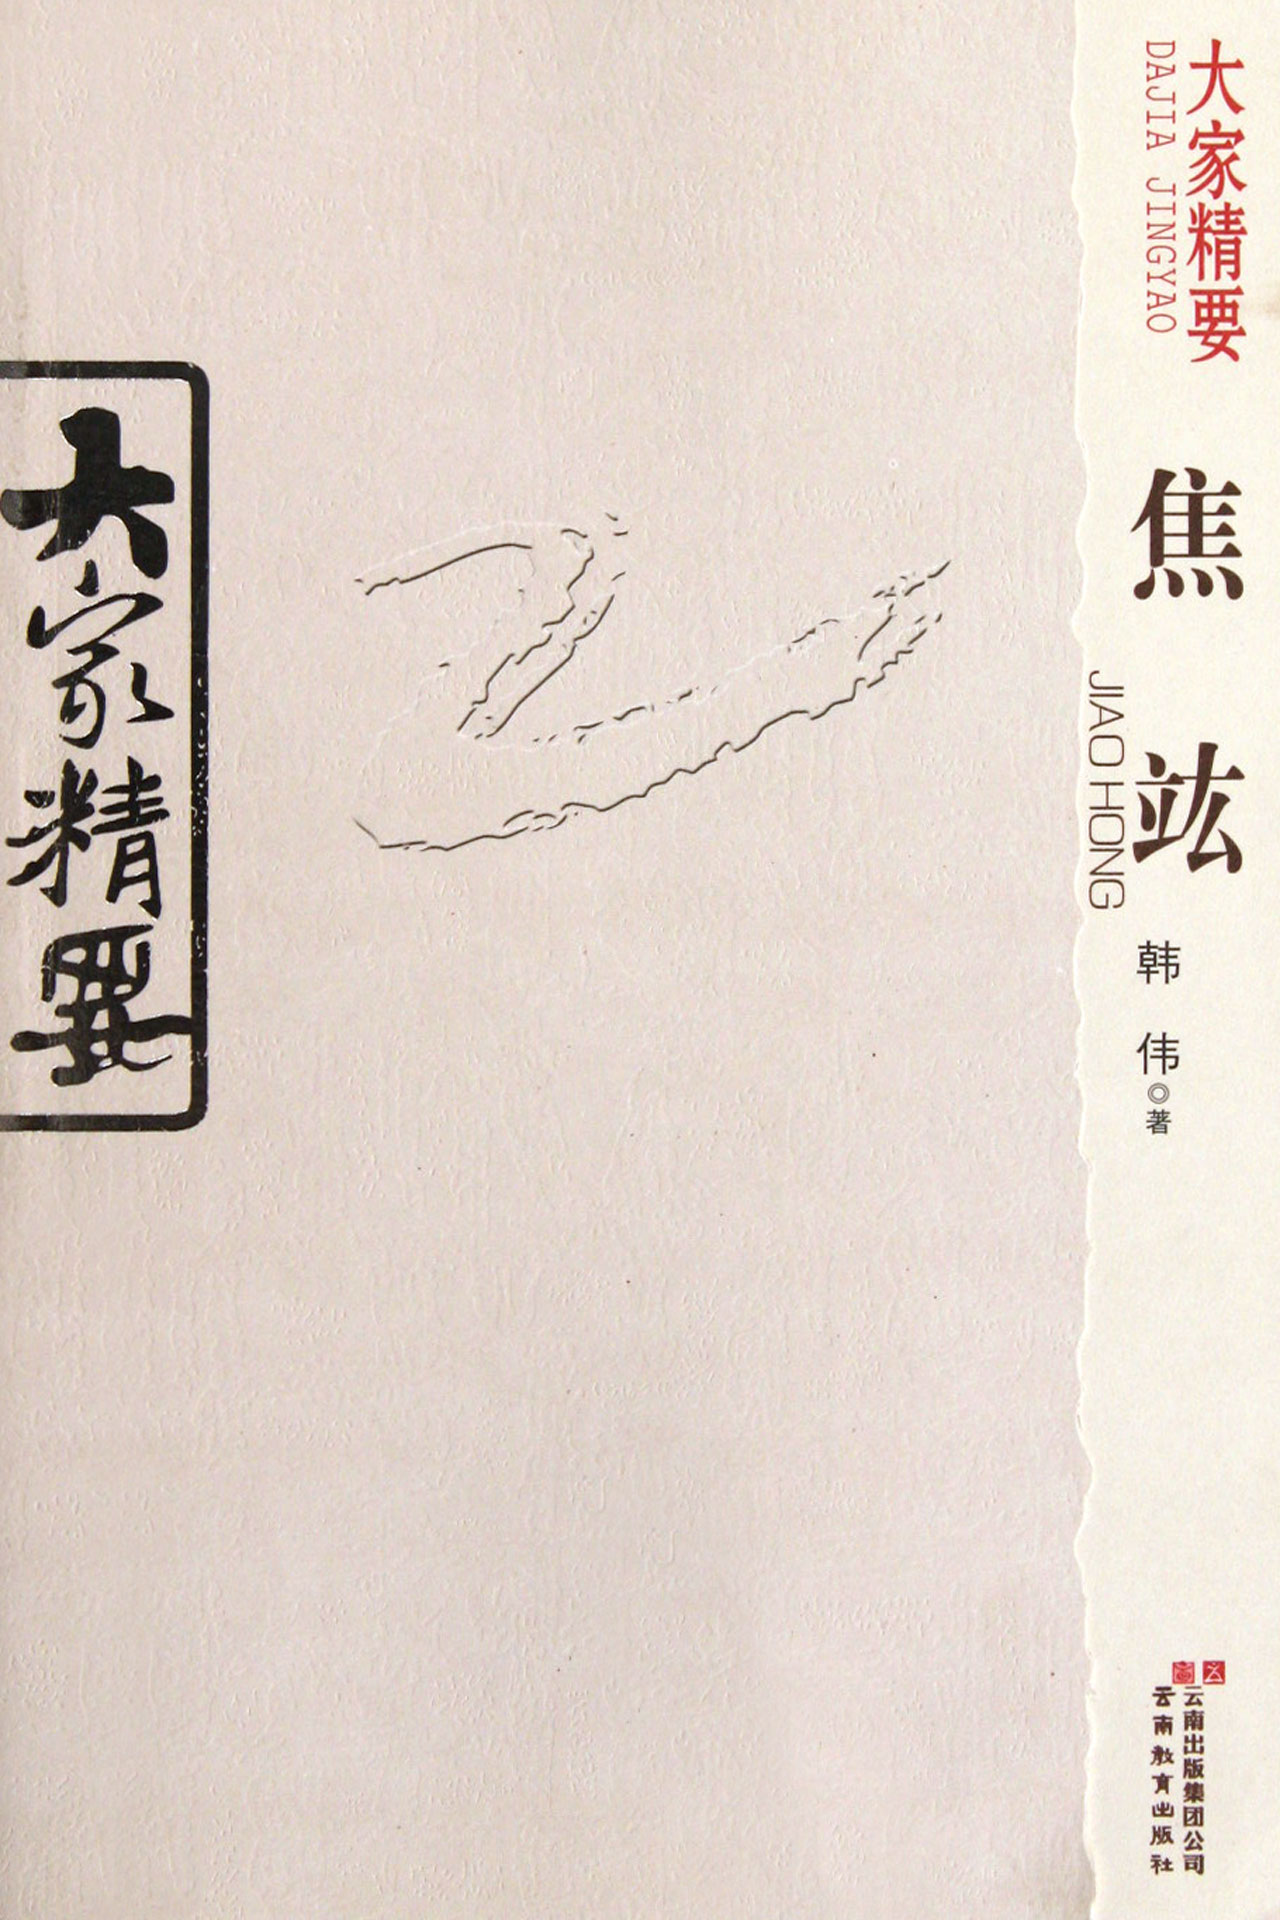 大家精要
DAJIA JINGYAO
焦竑
JIAO HONG
韩伟◎著
大家精要
云南出版集团公司
云南教育出版社